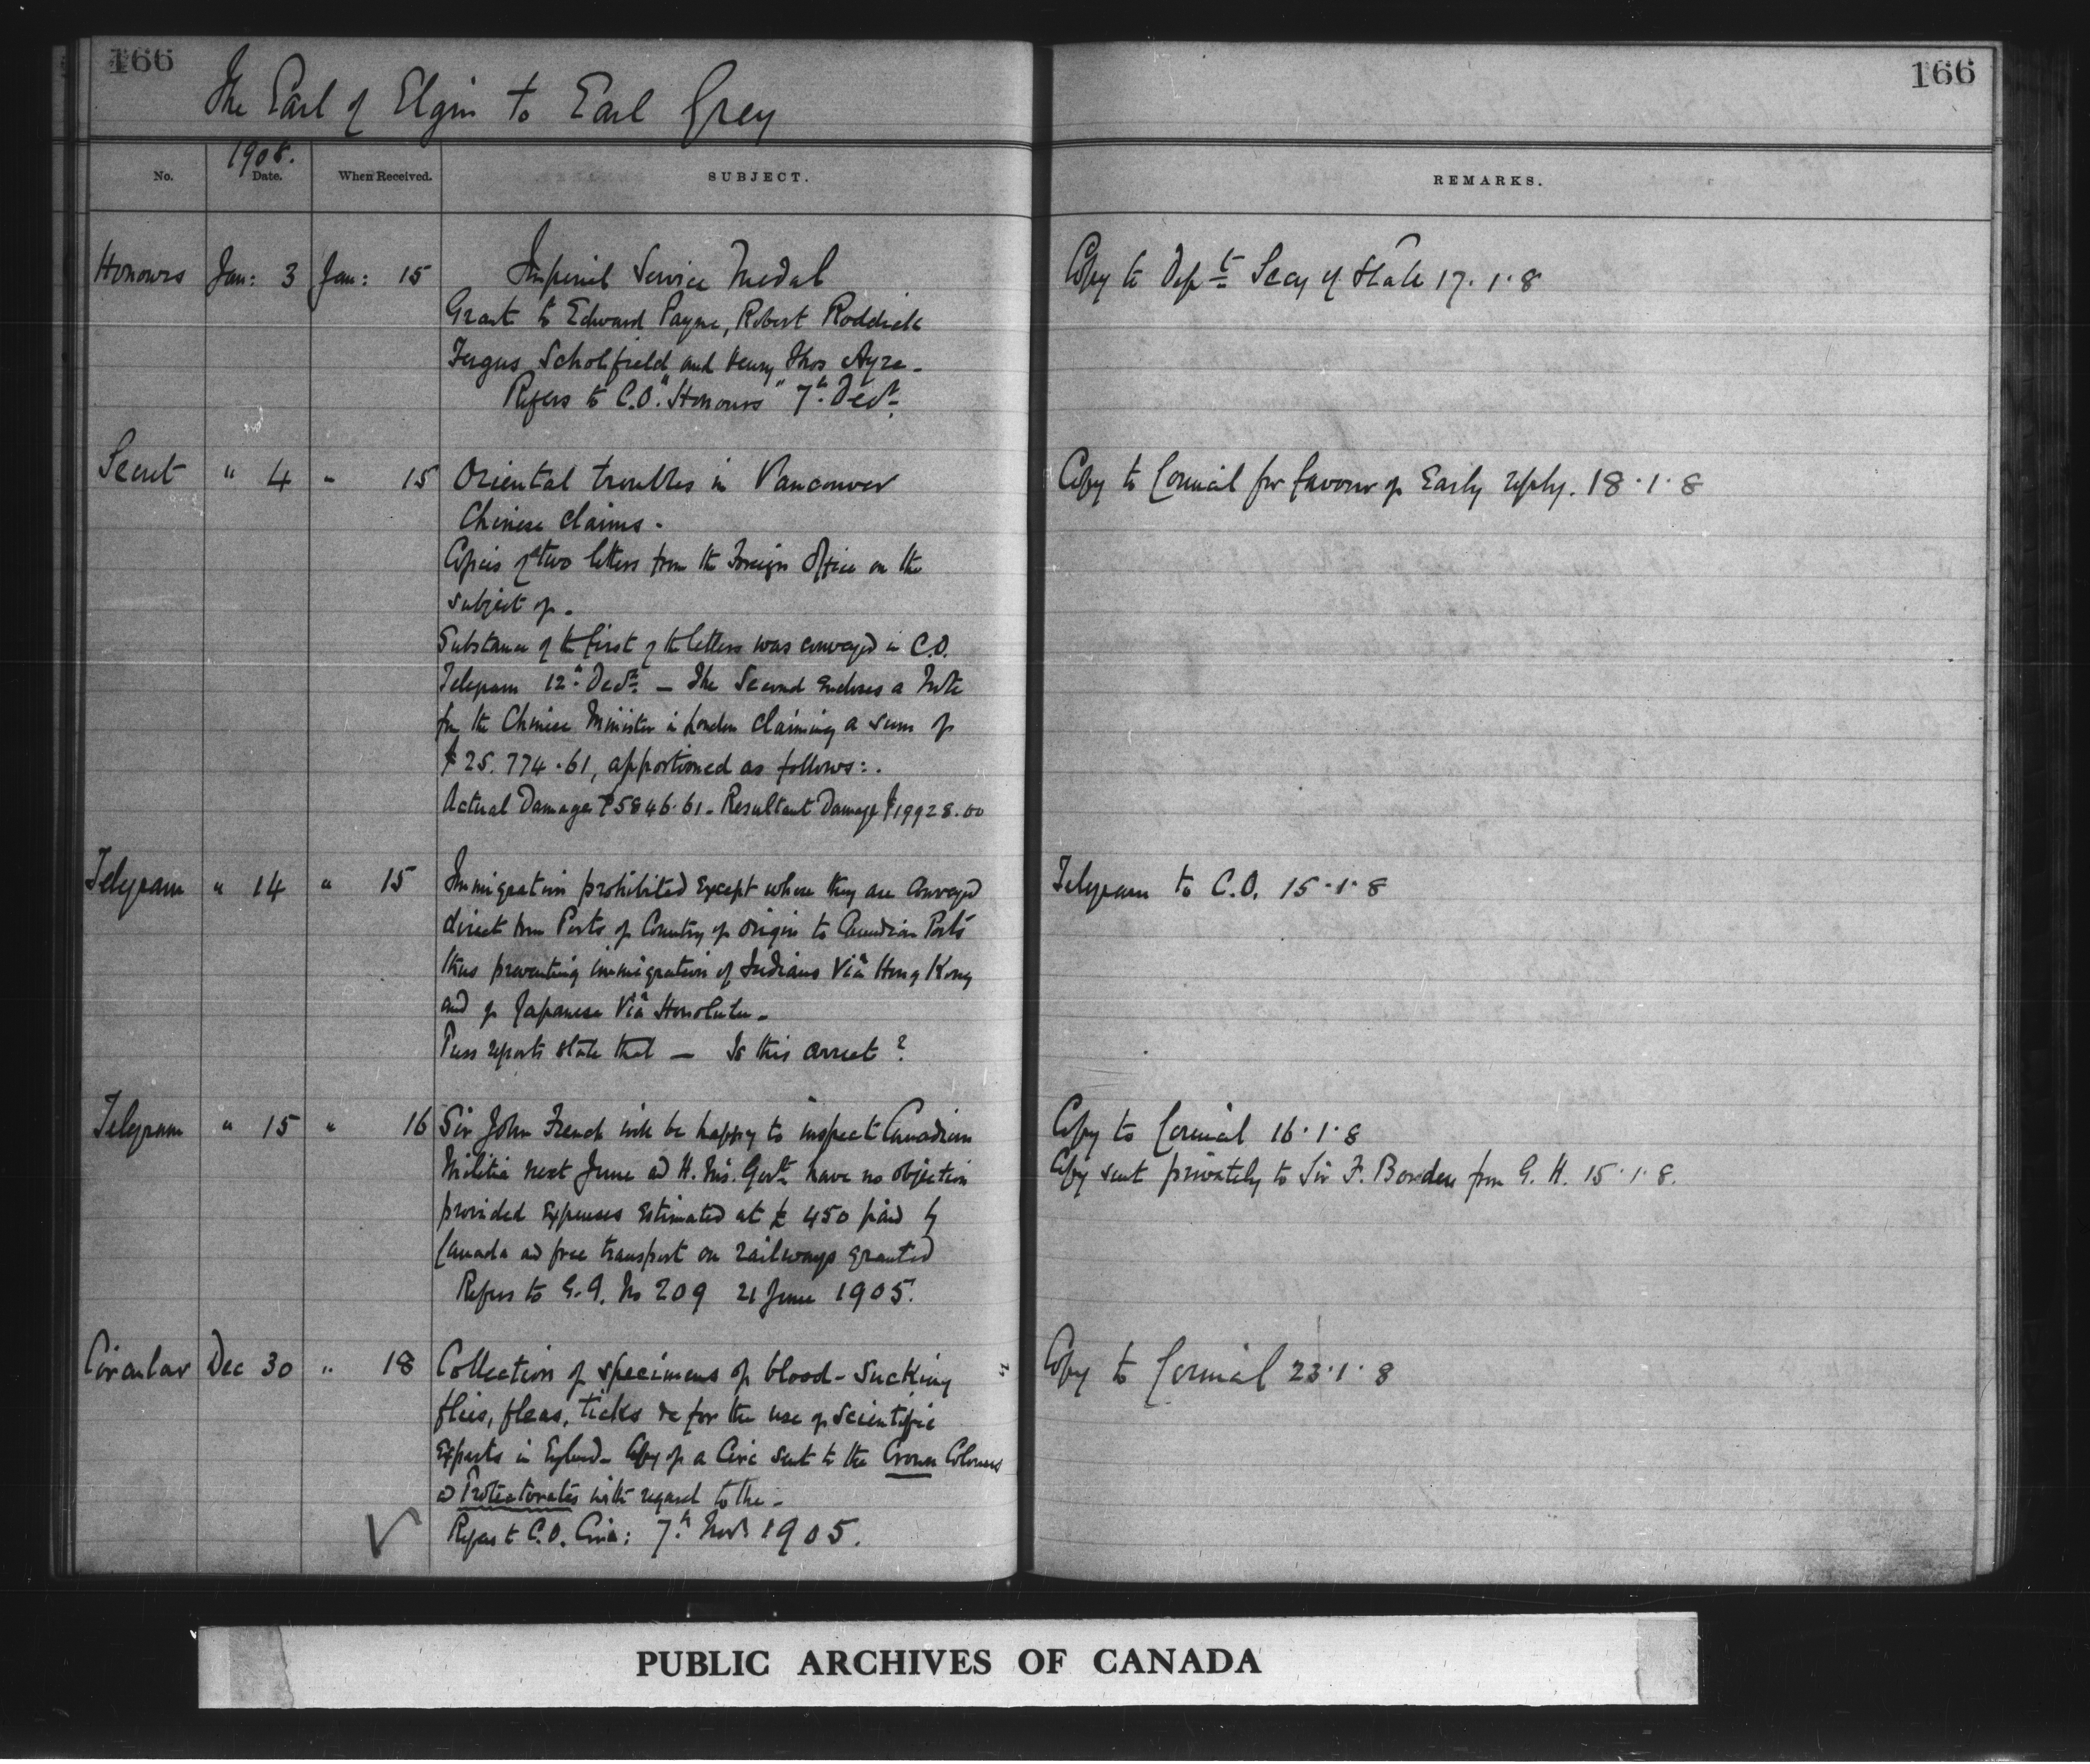 166
166
The Earl of Elgin to Earl Grey
1908.
No. Date. When Received. SUBJECT. REMARKS.
Honours Jan: 3 Jan: 15 Imperial Service Medal Copy to Dept Secy of State 17.1.8
Grant to Edward Payne, Robert Roddick
Fergus Scholfield and Henry Thos Ayre.
Refers to C.O. "Honours" 7th Decr.
Secret " 4 " 15 Oriental troubles in Vancouver Copy to Council for favour of Early reply. 18.1.8
Chinese claims.
Copies of two letters from the Foreign Office on the
subject of.
Substance of the first of the letters was conveyed in C.O.
Telegram 12th Decr. — The Second encloses a Note
fm the Chinese Minister in London claiming a sum of
$25.774.61, apportioned as follows:.
Actual Damage $5846.61. Resultant Damage $19928.00
Telegram " 14 " 15 Immigration prohibited Except where they are conveyed Telegram to C.O. 15.1.8
direct from Ports of Country of origin to Canadian Ports
thus preventing immigration of Indians Viâ Hong Kong
and of Japanese Viâ Honolulu.
Press reports state that — Is this correct?
Telegram " 15 " 16 Sir John French will be happy to inspect Canadian Copy to Council 16.1.8
Militia next June ad H. M's. Govt have no objection Copy sent privately to Sir F. Borden from G. H. 15.1.8.
provided Expenses Estimated at £ 450 paid by
Canada ad free transport on railways granted
Refers to G.G. No 209 21 June 1905.
Circular Dec 30 " 18 Collection of specimens of blood-sucking Copy to Council 23.1.8
flies, fleas, ticks &c for the use of Scientific
Experts in England. Copy of a Circ sent to the Crown Colonies
ad Protectorates with regard to the.
Refers to C.O. Circ: 7th Novr 1905.
PUBLIC ARCHIVES OF CANADA